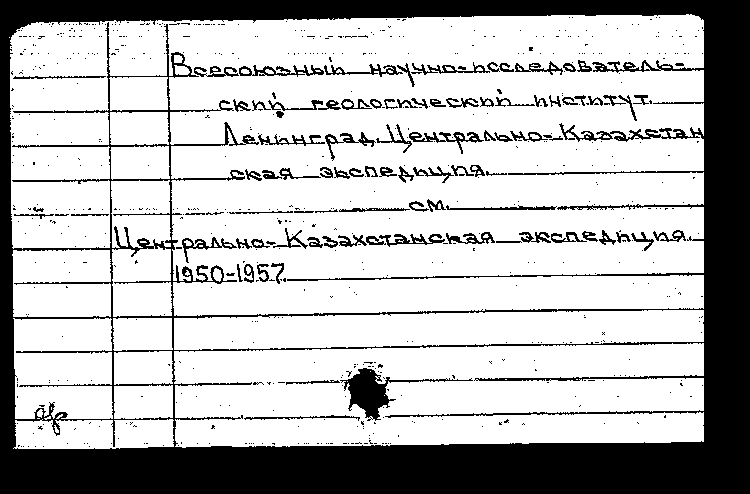 Всесоюзный научно-исследователь-
ский геологический институт.
Ленинград. Центрально-Казахстан
ская экспедиция.
см.
Центрально-Казахстанская экспедиция.
1950-1957.